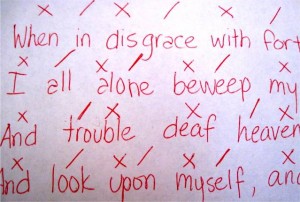 When in disgrace with fort
I all alone beweep my
And trouble deaf heaven
And look upon myself, and